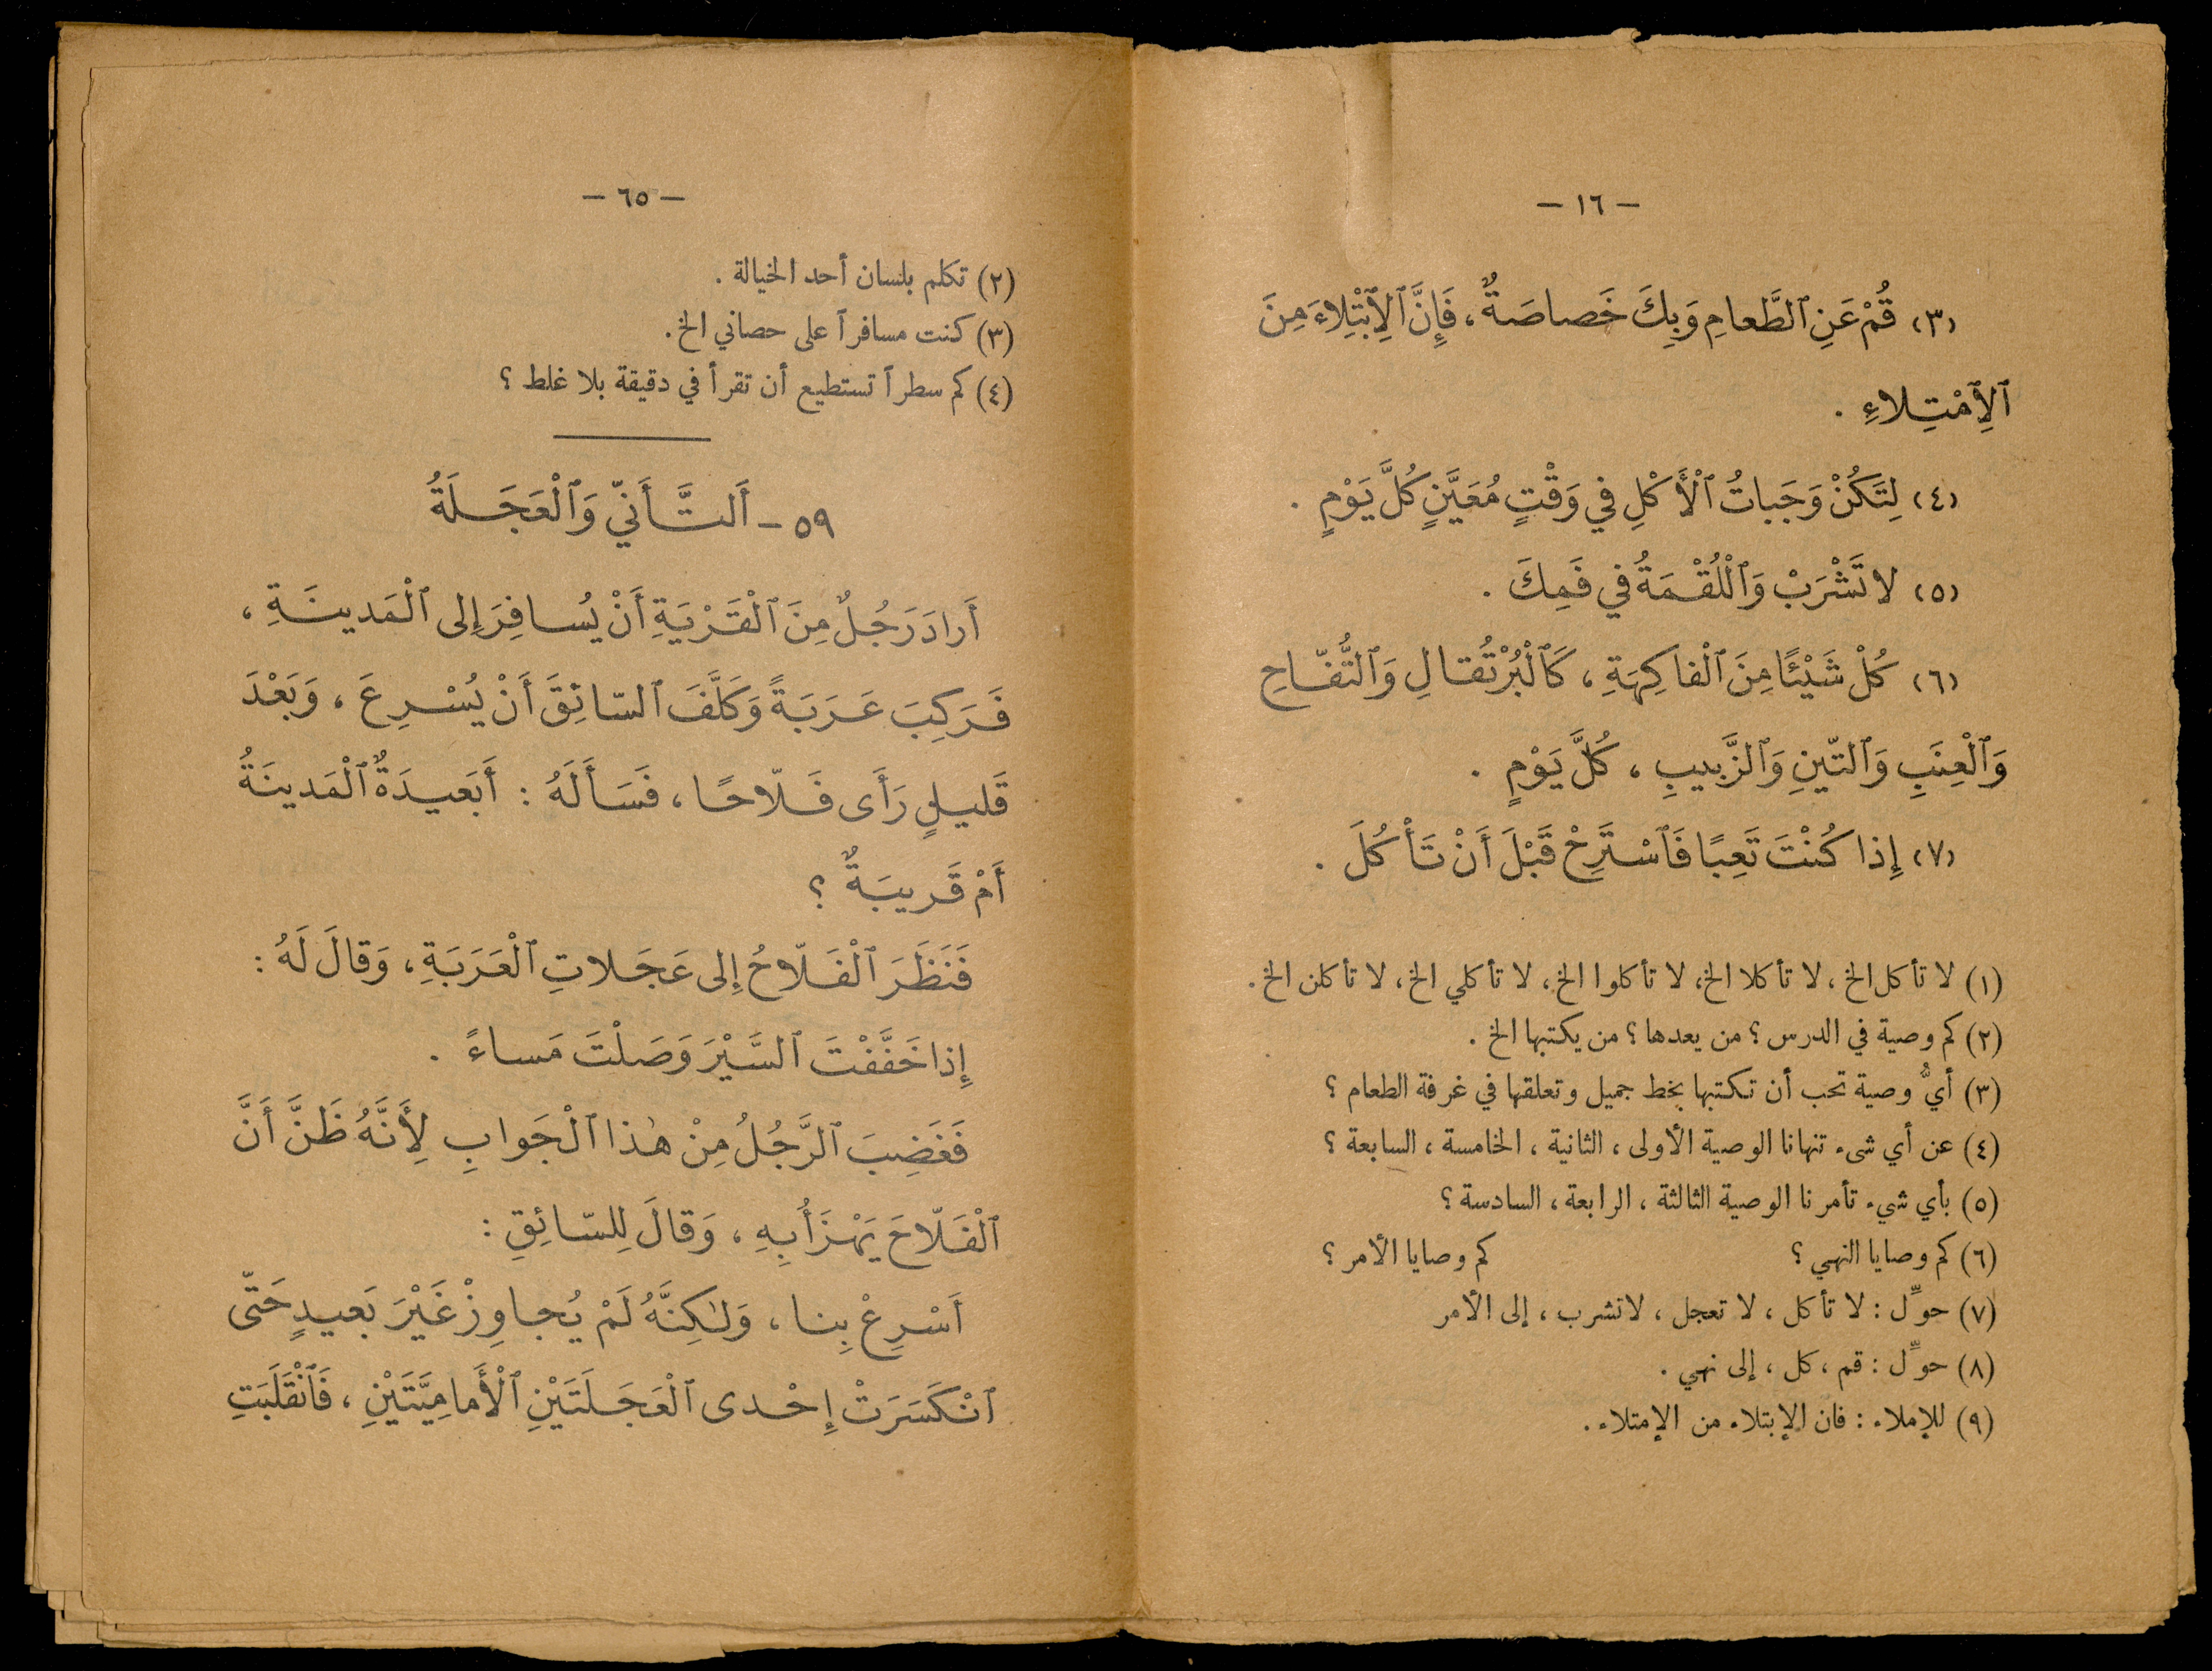 — ١٦ —
(٣) قُمْ عَنِ ٱلطَّعامِ وَبِكَ خَصاصَةٌ، فَإِنَّ ٱلِٱبْتِلاءَ مِنَ
ٱلِٱمْتِلاءِ .
(٤) لِتَكُنْ وَجَباتُ ٱلْأَكْلِ في وَقْتٍ مُعَيَّنٍ كُلَّ يَوْمٍ .
(٥) لا تَشْرَبْ وَٱلْلُقْمَةُ في فَمِكَ .
(٦) كُلْ شَيْئًا مِنَ ٱلْفاكِهَةِ ، كَٱلْبُرْتُقالِ وَٱلتُّفّاحِ
وَٱلْعِنَبِ وَٱلتّينِ وَٱلزَّبيبِ ، كُلَّ يَوْمٍ .
(٧) إِذا كُنْتَ تَعِبًا فَٱسْتَرِحْ قَبْلَ أَنْ تَأْكُلَ .
(١) لا تأكل الخ ، لا تأكلا الخ، لا تأكلوا الخ، لا تأكلي الخ، لا تأكلن الخ.
(٢) كم وصية في الدرس ؟ من يعدها ؟ من يكتبها الخ .
(٣) أيُّ وصية تحب أن تكتبها بخط جميل وتعلقها في غرفة الطعام ؟
(٤) عن أي شىء تنهانا الوصية الأولى ، الثانية ، الخامسة ، السابعة ؟
(٥) بأي شيء تأمرنا الوصية الثالثة ، الرابعة ، السادسة ؟
(٦) كم وصايا النهي ؟ كم وصايا الأمر ؟
(٧) حوِّل : لا تأكل ، لا تعجل ، لاتشرب ، إلى الأمر
(٨) حوِّل : قم ، كل ، إلى نهي .
(٩) للإملاء : فان الإبتلاء من الإمتلاء .
— ٦٥ —
(٢) تكلم بلسان أحد الخيالة .
(٣) كنت مسافراً على حصاني الخ.
(٤) كم سطراً تستطيع أن تقرأ في دقيقة بلا غلط ؟
٥٩ – أَلتَّأَنّي وَٱلْعَجَلَةُ
أَرادَ رَجُلٌ مِنَ ٱلْقَرْيَةِ أَنْ يُسافِرَ إِلى ٱلْمَدينَةِ ،
فَرَكِبَ عَرَبَةً وَكَلَّفَ ٱلسّائِقَ أَنْ يُسْرِعَ ، وَبَعْدَ
قَليلٍ رَأَى فَلّاحًا ، فَسَأَلَهُ : أَبَعيدَةٌ ٱلْمَدينَةُ
أَمْ قَريبَةٌ ؟
فَنَظَرَ ٱلْفَلّاحُ إِلى عَجَلاتِ ٱلْعَرَبَةِ ، وَقالَ لَهُ :
إِذا خَفَّفْتَ ٱلسَّيْرَ وَصَلْتَ مَساءً .
فَغَضِبَ ٱلرَّجُلُ مِنْ هٰذا ٱلْجَوابِ لِأَنَّهُ ظَنَّ أَنَّ
ٱلْفَلّاحَ يَهْزَأُ بِهِ ، وَقالَ لِلسّائِقِ :
أَسْرِعْ بِنا ، وَلٰكِنَّهُ لَمْ يُجاوِزْ غَيْرَ بَعيدٍ حَتّى
ٱنْكَسَرَتْ إِحْدى ٱلْعَجَلَتَيْنِ ٱلْأَمامِيَّتَيْنِ ، فَٱنْقَلَبَتِ